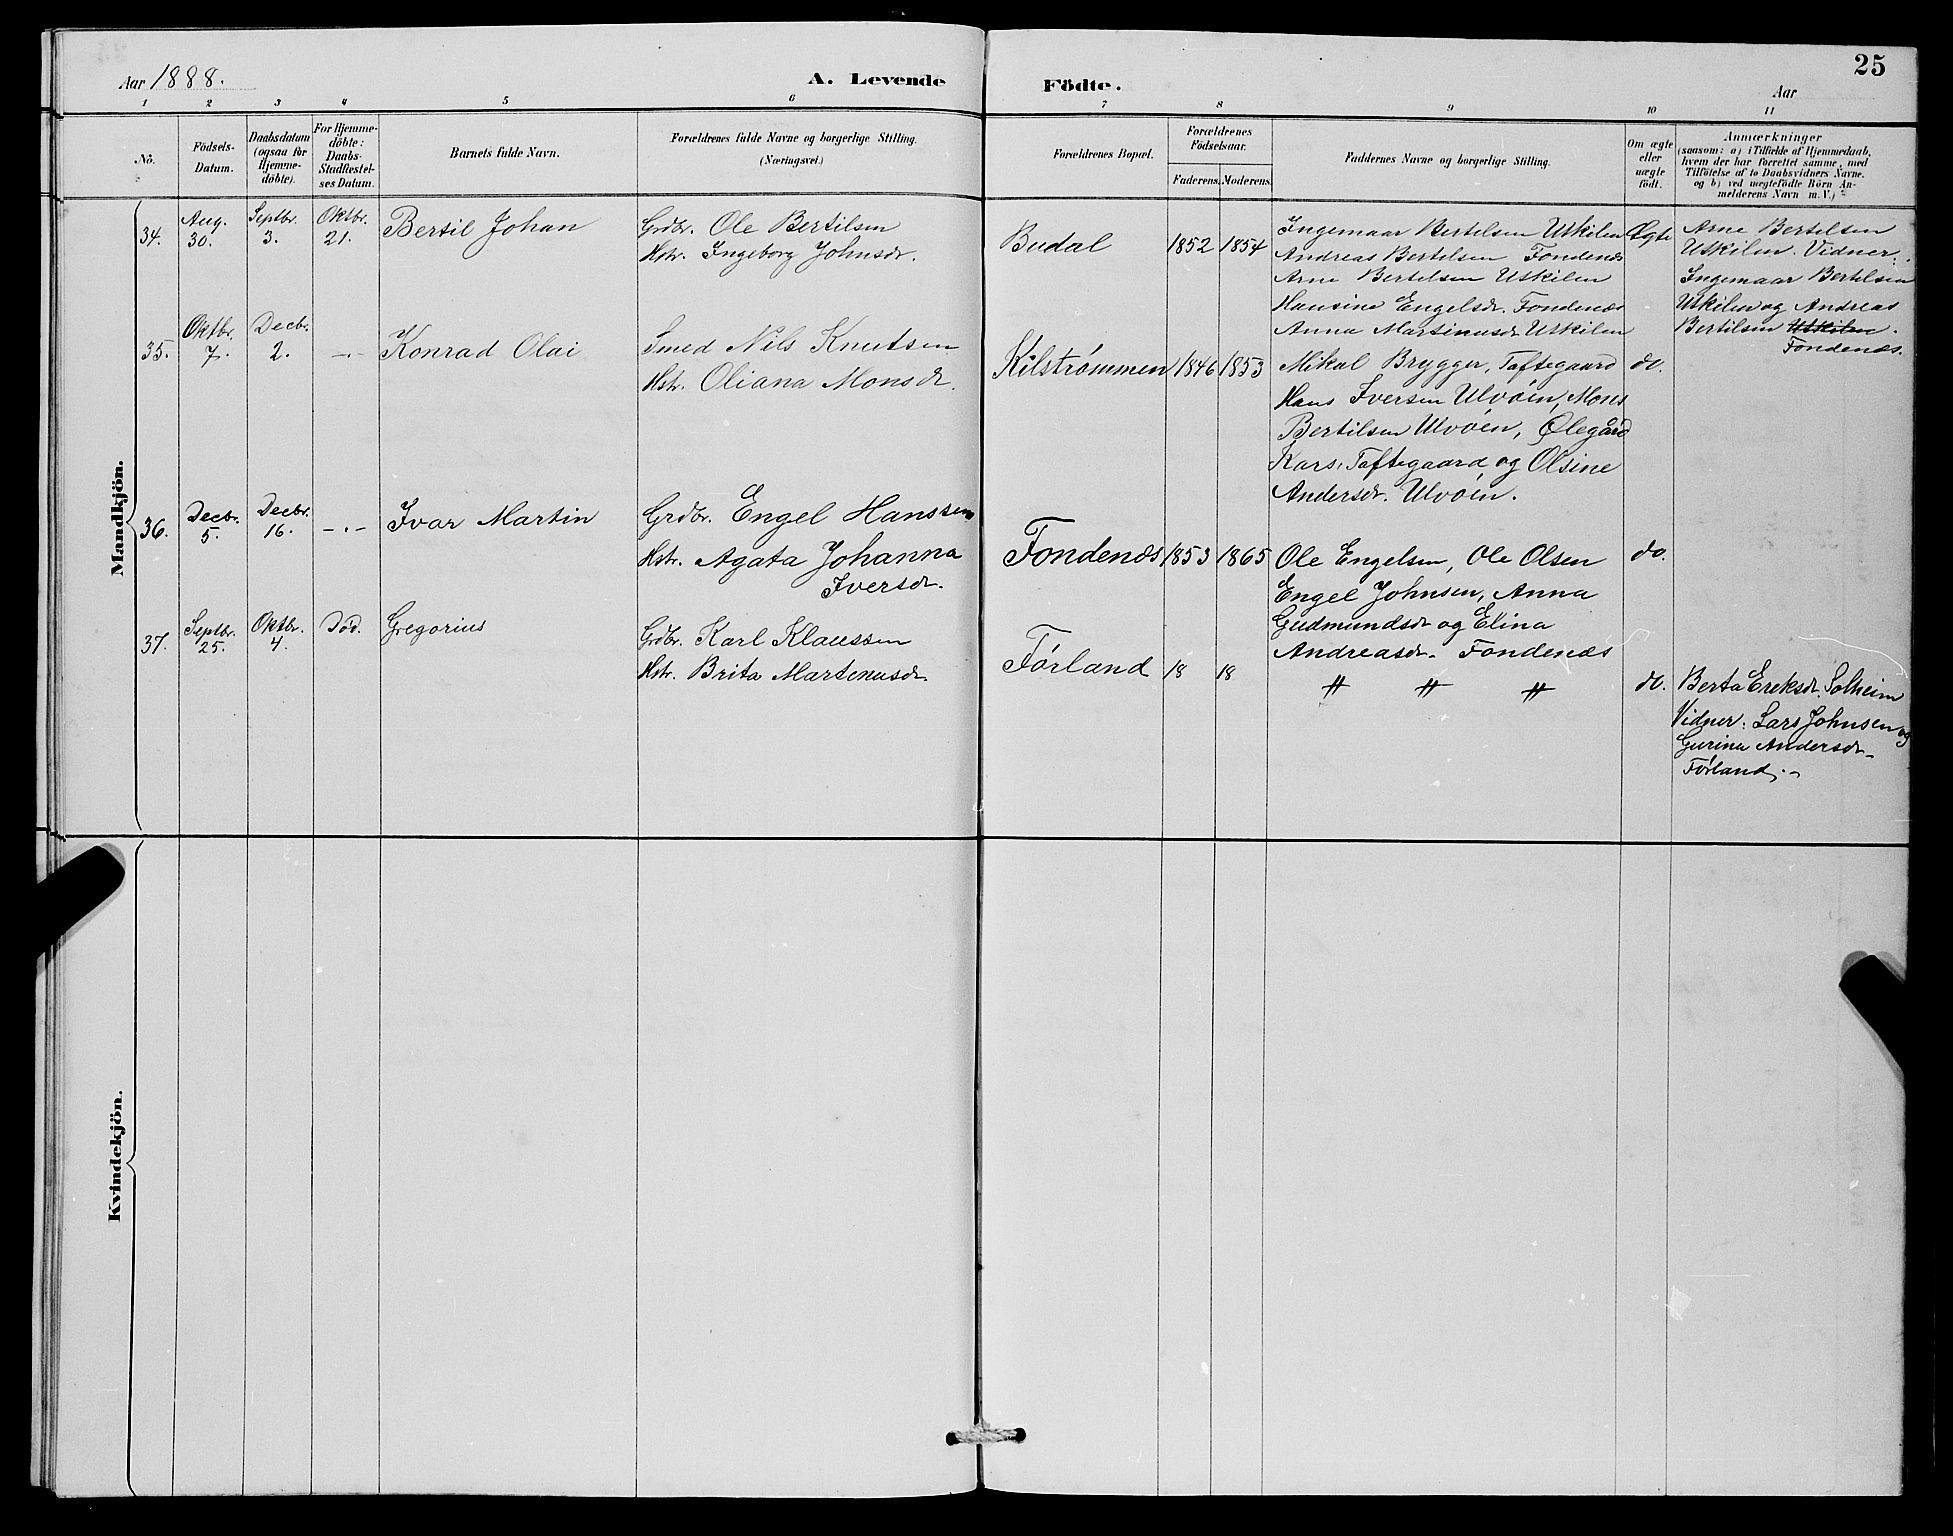 Aar 1888.
A. Levende Födte.
25
Aar
1 2 3 4 5 6 7 8 9 10 11
No.
Födsels-
Datum.
Daabsdatum
(ogsaa for
Hjemme-
döbte).
For Hjemme-
döbte:
Daabs-
Stadfæstel-
ses Datum.
Barnets fulde Navn.
Forældrenes fulde Navne og borgerlige Stilling.
(Næringsvei.)
Forældrenes Bopæl.
Forældrenes
Födselsaar.
Faderens. Moderens.
Faddernes Navne og borgerlige Stilling.
Om ægte
eller
uægte
født.
Anmærkninger
(saasom: a) i Tilfælde af Hjemmedaab,
hvem der har forrettet samme, med
Tilföielse af to Daabsvidners Navne.
og b) ved uægtefödte Börn An-
melderens Navn m.V.)
Mandkjön.
34.
Aug.
30.
Septbr.
3.
Oktbr.
21.
Bertil Johan
Grdbr. Ole Bertilsen
Hstr. Ingeborg Johnsdr.
Budal
1852 1854
Ingemaar Bertelsen Utkilen
Andreas Bertelsen Fondenæs
Arne Bertelsen Utkilen
Hansine Engelsdr. Fondenæs
Anna Martinusdr Utkilen
Ægte
Arne Bertelsen
Utkilen. Vidner:
Ingemaar Bertelsen
Utkilen og Andreas
Bertilsen Utkilen.
Fondenæs.
35.
Oktbr.
7.
Decbr.
2.
-.-
Konrad Olai
Smed Nils Knutsen
Hstr. Oliana Monsdr.
Kilstrømmen
1846 1853
Mikal Brygger, Toftegaard
Hans Iversen Ulvøen, Mons
Bertilsen Ulvøen, Ølegård
Kars. Toftegaard og Olsine
Andersdr. Ulvøen.
do.
36.
Decbr.
5.
Decbr.
16.
-.-
Ivar Martin
Grdbr. Engel Hanssen
Hstr. Agata Johanna
Iversdr.
Fondenæs
1853 1865
Ole Engelsen, Ole Olsen
Engel Johnsen, Anna
Gudmundsdr og Elina
Andreasdr. Fondenæs
do.
37.
Septbr.
25.
Oktbr.
4.
Død.
Gregorius
Grdbr. Karl Klaussen
Hstr. Brita Martenusdr.
Førland
18 18
〃 〃 〃
do.
Berta Ereksdr. Solheim
Vidner: Lars Johnsen og
Gurina Andersdr.
Førland.
Kvindekjön.